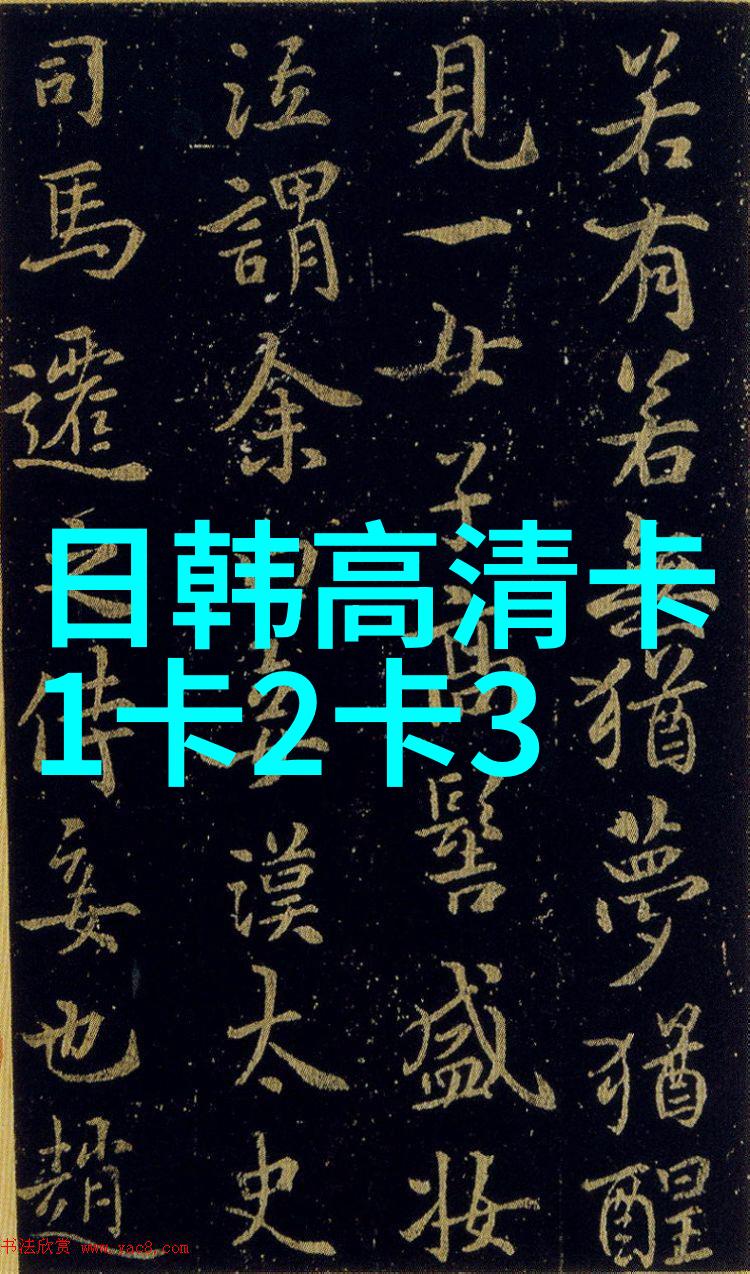 若有若無猶夢猶醒
見一女子高髻盛妝
泣謂余曰妾漢太史
司馬遷之侍妾也趙
日韩高清卡
1卡2卡3
书法欣赏 www.yac8.com